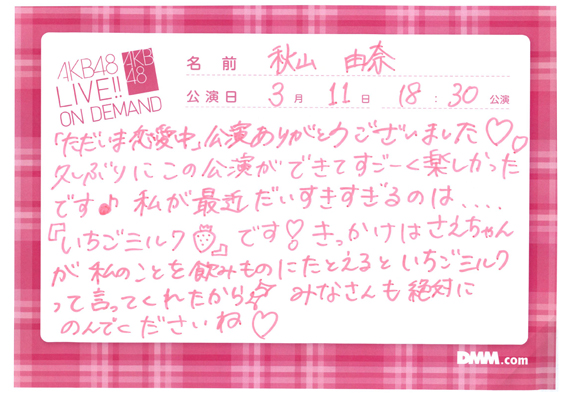 AKB48
LIVE!!
ON DEMAND
AKB
48
名 前 秋山 由奈
公演日 3月 11日 18:30 公演
「ただいま恋愛中」公演ありがとうございました♡
久しぶりにこの公演ができてすごーく楽しかった
です♪ 私が最近だいすきすぎるのは....
『いちごミルク🍓』です! きっかけはさえちゃん
が私のことを飲みものにたとえるといちごミルク
って言ってくれたから みなさんも絶対に
のんでくださいね♡
DMM.com